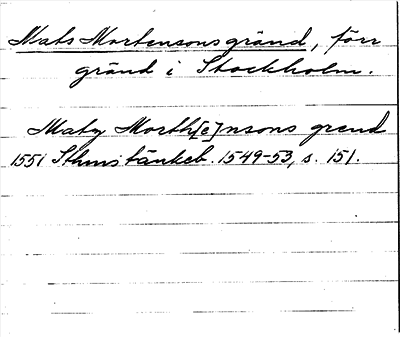 Mats Mortensons gränd, förr
gränd i Stockholm.
Maty Morth[e]nsons grend
1551 Sthms tänkeb. 1549-53, s. 151.